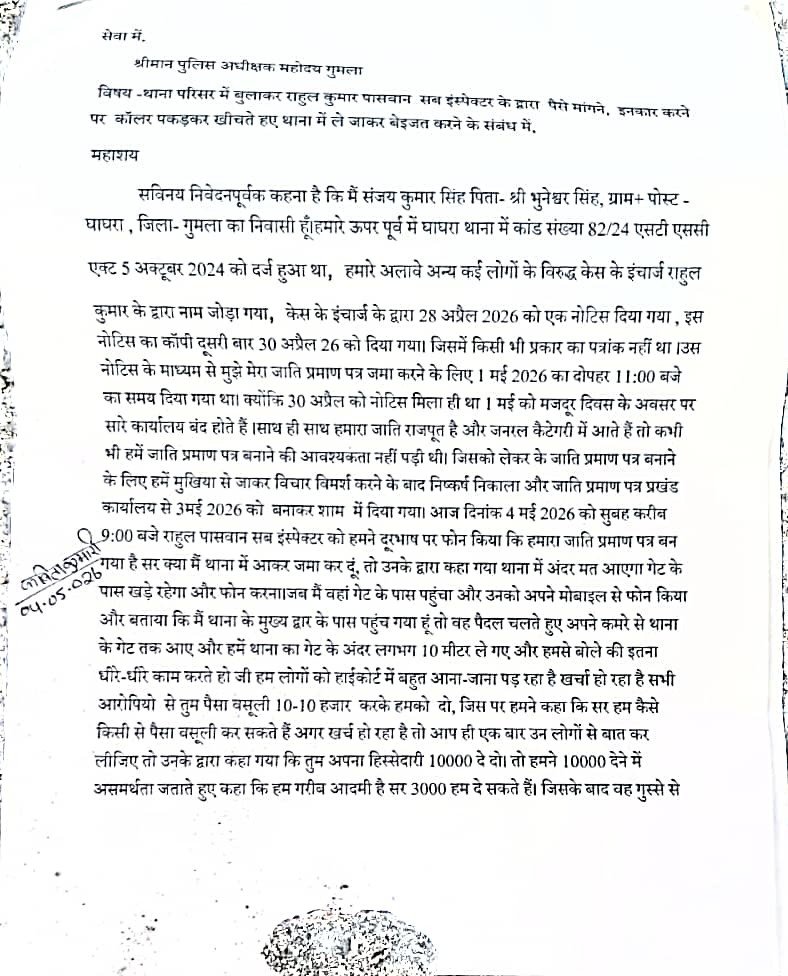 सेवा में.
श्रीमान पुलिस अधीक्षक महोदय गुमला
विषय -थाना परिसर में बुलाकर राहुल कुमार पासवान सब इंस्पेक्टर के द्वारा पैसे मांगने. इनकार करने
पर कॉलर पकड़कर खींचते हुए थाना में ले जाकर बेइजत करने के संबंध में.
महाशय
सविनय निवेदनपूर्वक कहना है कि मैं संजय कुमार सिंह पिता- श्री भुनेश्वर सिंह, ग्राम+ पोस्ट -
घाघरा , जिला- गुमला का निवासी हूँ।हमारे ऊपर पूर्व में घाघरा थाना में कांड संख्या 82/24 एसटी एससी
एक्ट 5 अक्टूबर 2024 को दर्ज हुआ था, हमारे अलावे अन्य कई लोगों के विरुद्ध केस के इंचार्ज राहुल
कुमार के द्वारा नाम जोड़ा गया, केस के इंचार्ज के द्वारा 28 अप्रैल 2026 को एक नोटिस दिया गया , इस
नोटिस का कॉपी दूसरी बार 30 अप्रैल 26 को दिया गया। जिसमें किसी भी प्रकार का पत्रांक नहीं था ।उस
नोटिस के माध्यम से मुझे मेरा जाति प्रमाण पत्र जमा करने के लिए 1 मई 2026 का दोपहर 11:00 बजे
का समय दिया गया था। क्योंकि 30 अप्रैल को नोटिस मिला ही था 1 मई को मजदूर दिवस के अवसर पर
सारे कार्यालय बंद होते हैं ।साथ ही साथ हमारा जाति राजपूत है और जनरल कैटेगरी में आते हैं तो कभी
भी हमें जाति प्रमाण पत्र बनाने की आवश्यकता नहीं पड़ी थी। जिसको लेकर के जाति प्रमाण पत्र बनाने
के लिए हमें मुखिया से जाकर विचार विमर्श करने के बाद निष्कर्ष निकाला और जाति प्रमाण पत्र प्रखंड
कार्यालय से 3मई 2026 को बनाकर शाम में दिया गया। आज दिनांक 4 मई 2026 को सुबह करीब
9:00 बजे राहुल पासवान सब इंस्पेक्टर को हमने दूरभाष पर फोन किया कि हमारा जाति प्रमाण पत्र बन
गया है सर क्या मैं थाना में आकर जमा कर दूं, तो उनके द्वारा कहा गया थाना में अंदर मत आएगा गेट के
पास खड़े रहेगा और फोन करना।जब मैं वहां गेट के पास पहुंचा और उनको अपने मोबाइल से फोन किया
और बताया कि मैं थाना के मुख्य द्वार के पास पहुंच गया हूं तो वह पैदल चलते हुए अपने कमरे से थाना
के गेट तक आए और हमें थाना का गेट के अंदर लगभग 10 मीटर ले गए और हमसे बोले की इतना
धीरे-धीरे काम करते हो जी हम लोगों को हाईकोर्ट में बहुत आना-जाना पड़ रहा है खर्चा हो रहा है सभी
आरोपियो से तुम पैसा वसूली 10-10 हजार करके हमको दो, जिस पर हमने कहा कि सर हम कैसे
किसी से पैसा वसूली कर सकते हैं अगर खर्च हो रहा है तो आप ही एक बार उन लोगों से बात कर
लीजिए तो उनके द्वारा कहा गया कि तुम अपना हिस्सेदारी 10000 दे दो। तो हमने 10000 देने में
असमर्थता जताते हुए कहा कि हम गरीब आदमी है सर 3000 हम दे सकते हैं। जिसके बाद वह गुस्से से
04.05.026